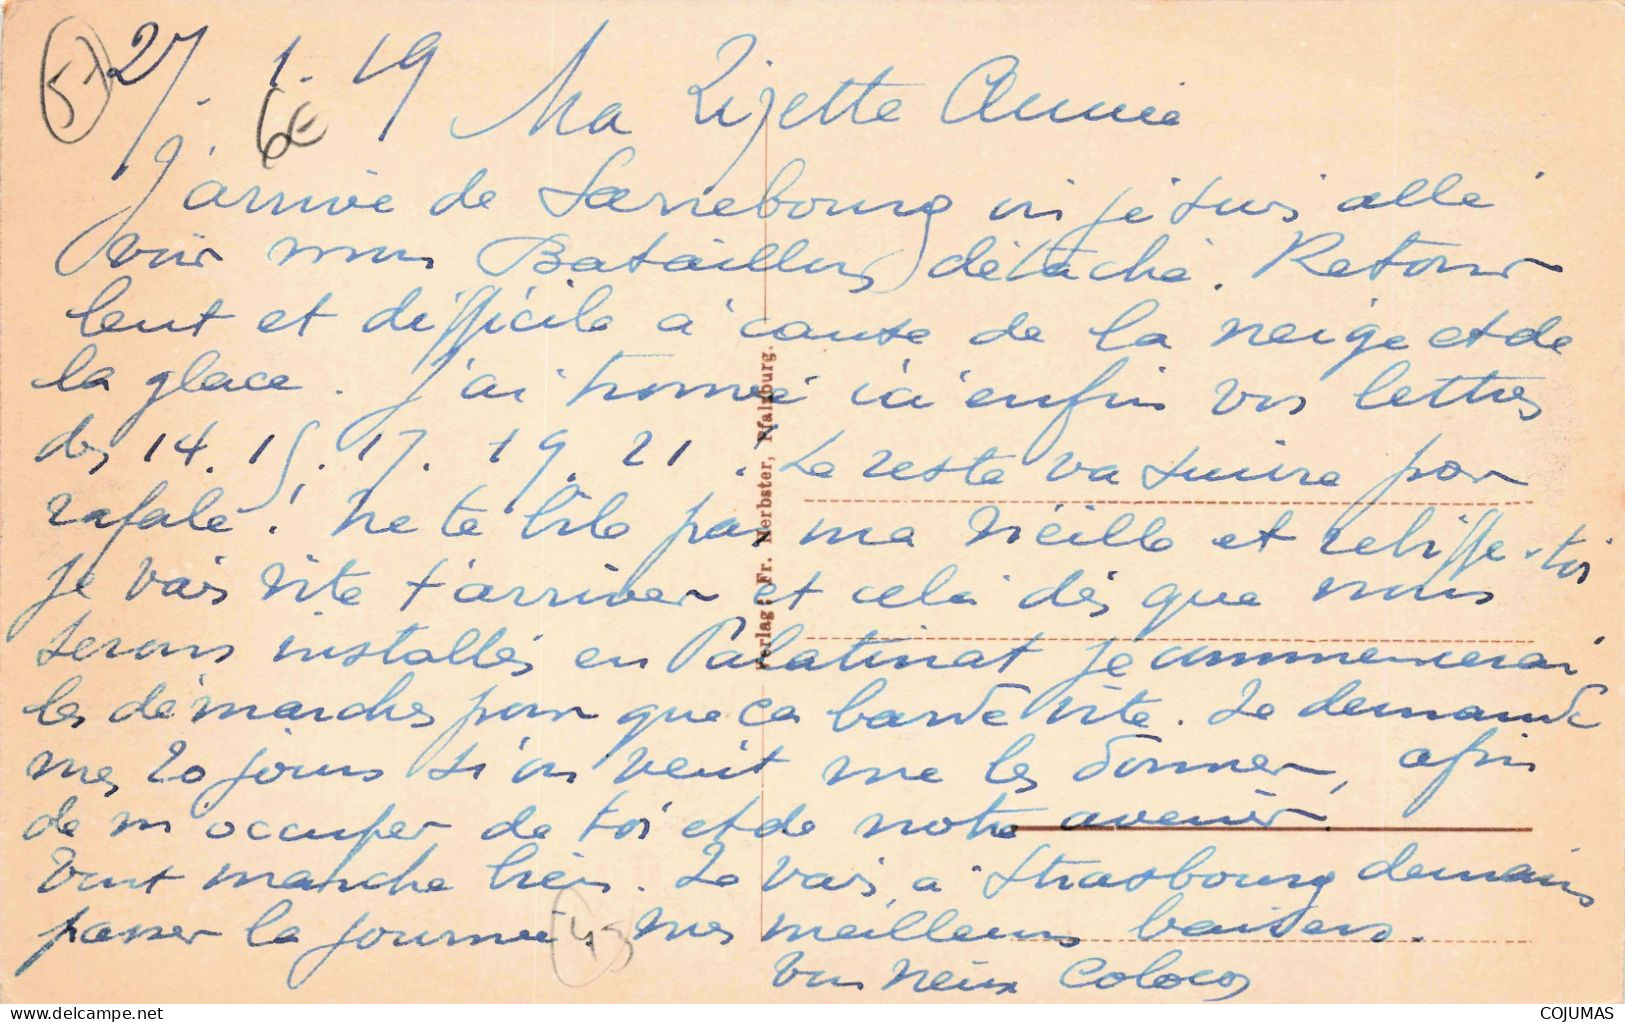 27. 1. 19 Ma Lizette Aimée
J'arrive de Sarrebourg où je suis allé
voir mon Bataillon détaché. Retour
lent et difficile à cause de la neige et de
la glace. J'ai trouvé ici enfin vos lettres
des 14. 15. 17. 19. 21. Le reste va suivre par
rafale! Ne te bile pas ma vieille et rebiffe-toi
je vais vite t'arriver et cela dès que nous
serons installés en Palatinat je commencerai
les démarches pour que ça barde vite. Je demande
mes 20 jours si on veut me les donner, afin
de m'occuper de toi et de notre avenir.
Tout marche bien. Je vais à Strasbourg demain
passer la journée. Mes meilleurs baisers.
Ton vieux
Verlag: Fr. Merbster, Pfalzburg.
57
6€
43
COJUMAS